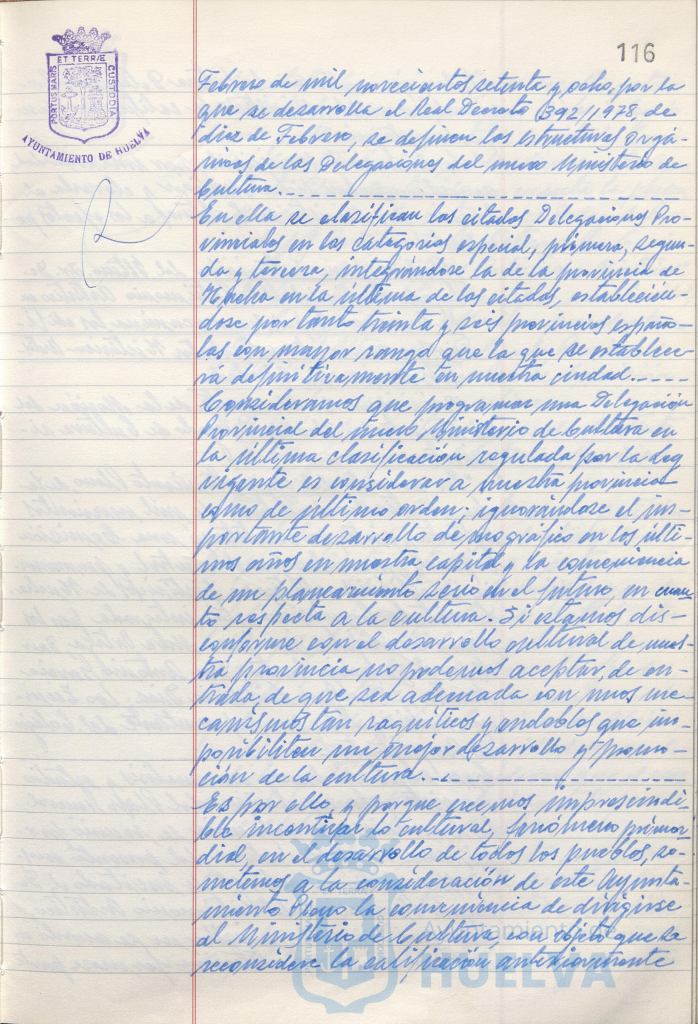 116
ET TERRÆ
PORTUS MARIS
CUSTODIA
AYUNTAMIENTO DE HUELVA
Febrero de mil novecientos setenta y ocho, por la
que se desarrolla el Real Decreto (392/1978, de
diez de Febrero, se definen las estructuras orgá-
nicas de las Delegaciones del nuevo Ministerio de
Cultura.
En ella se clasifican las citadas Delegaciones Pro-
vinciales en las categorías especial, primera, segun-
da y tercera, integrándose la de la provincia de
Huelva en la última de las citadas, establecién-
dose por tanto treinta y seis provincias españo-
las con mayor rango que la que se establece-
rá definitivamente en nuestra ciudad.
Consideramos que programar una Delegación
Provincial del nuevo Ministerio de Cultura en
la última clasificación regulada por la Ley
vigente es considerar a nuestra provincia
como de último orden; ignorándose el im-
portante desarrollo demográfico en los últi-
mos años en nuestra capital y la conveniencia
de un planeamiento serio en el futuro, en cuan-
to respecta a la cultura. Si estamos dis-
conforme con el desarrollo cultural de nues-
tra provincia no podemos aceptar, de en-
trada, de que sea ademada con unos me-
canismos tan raquíticos y endebles que im-
posibiliten un mejor desarrollo y promo-
ción de la cultura.
Es por ello, y porque creemos imprescindi-
ble incentivar lo cultural, fenómeno primor-
dial, en el desarrollo de todos los pueblos, so-
metemos a la consideración de este Ayunta-
miento Pleno la conveniencia de dirigirse
al Ministerio de Cultura, con objeto que se
reconsidere la calificación anteriormente
Ayuntamiento de
HUELVA